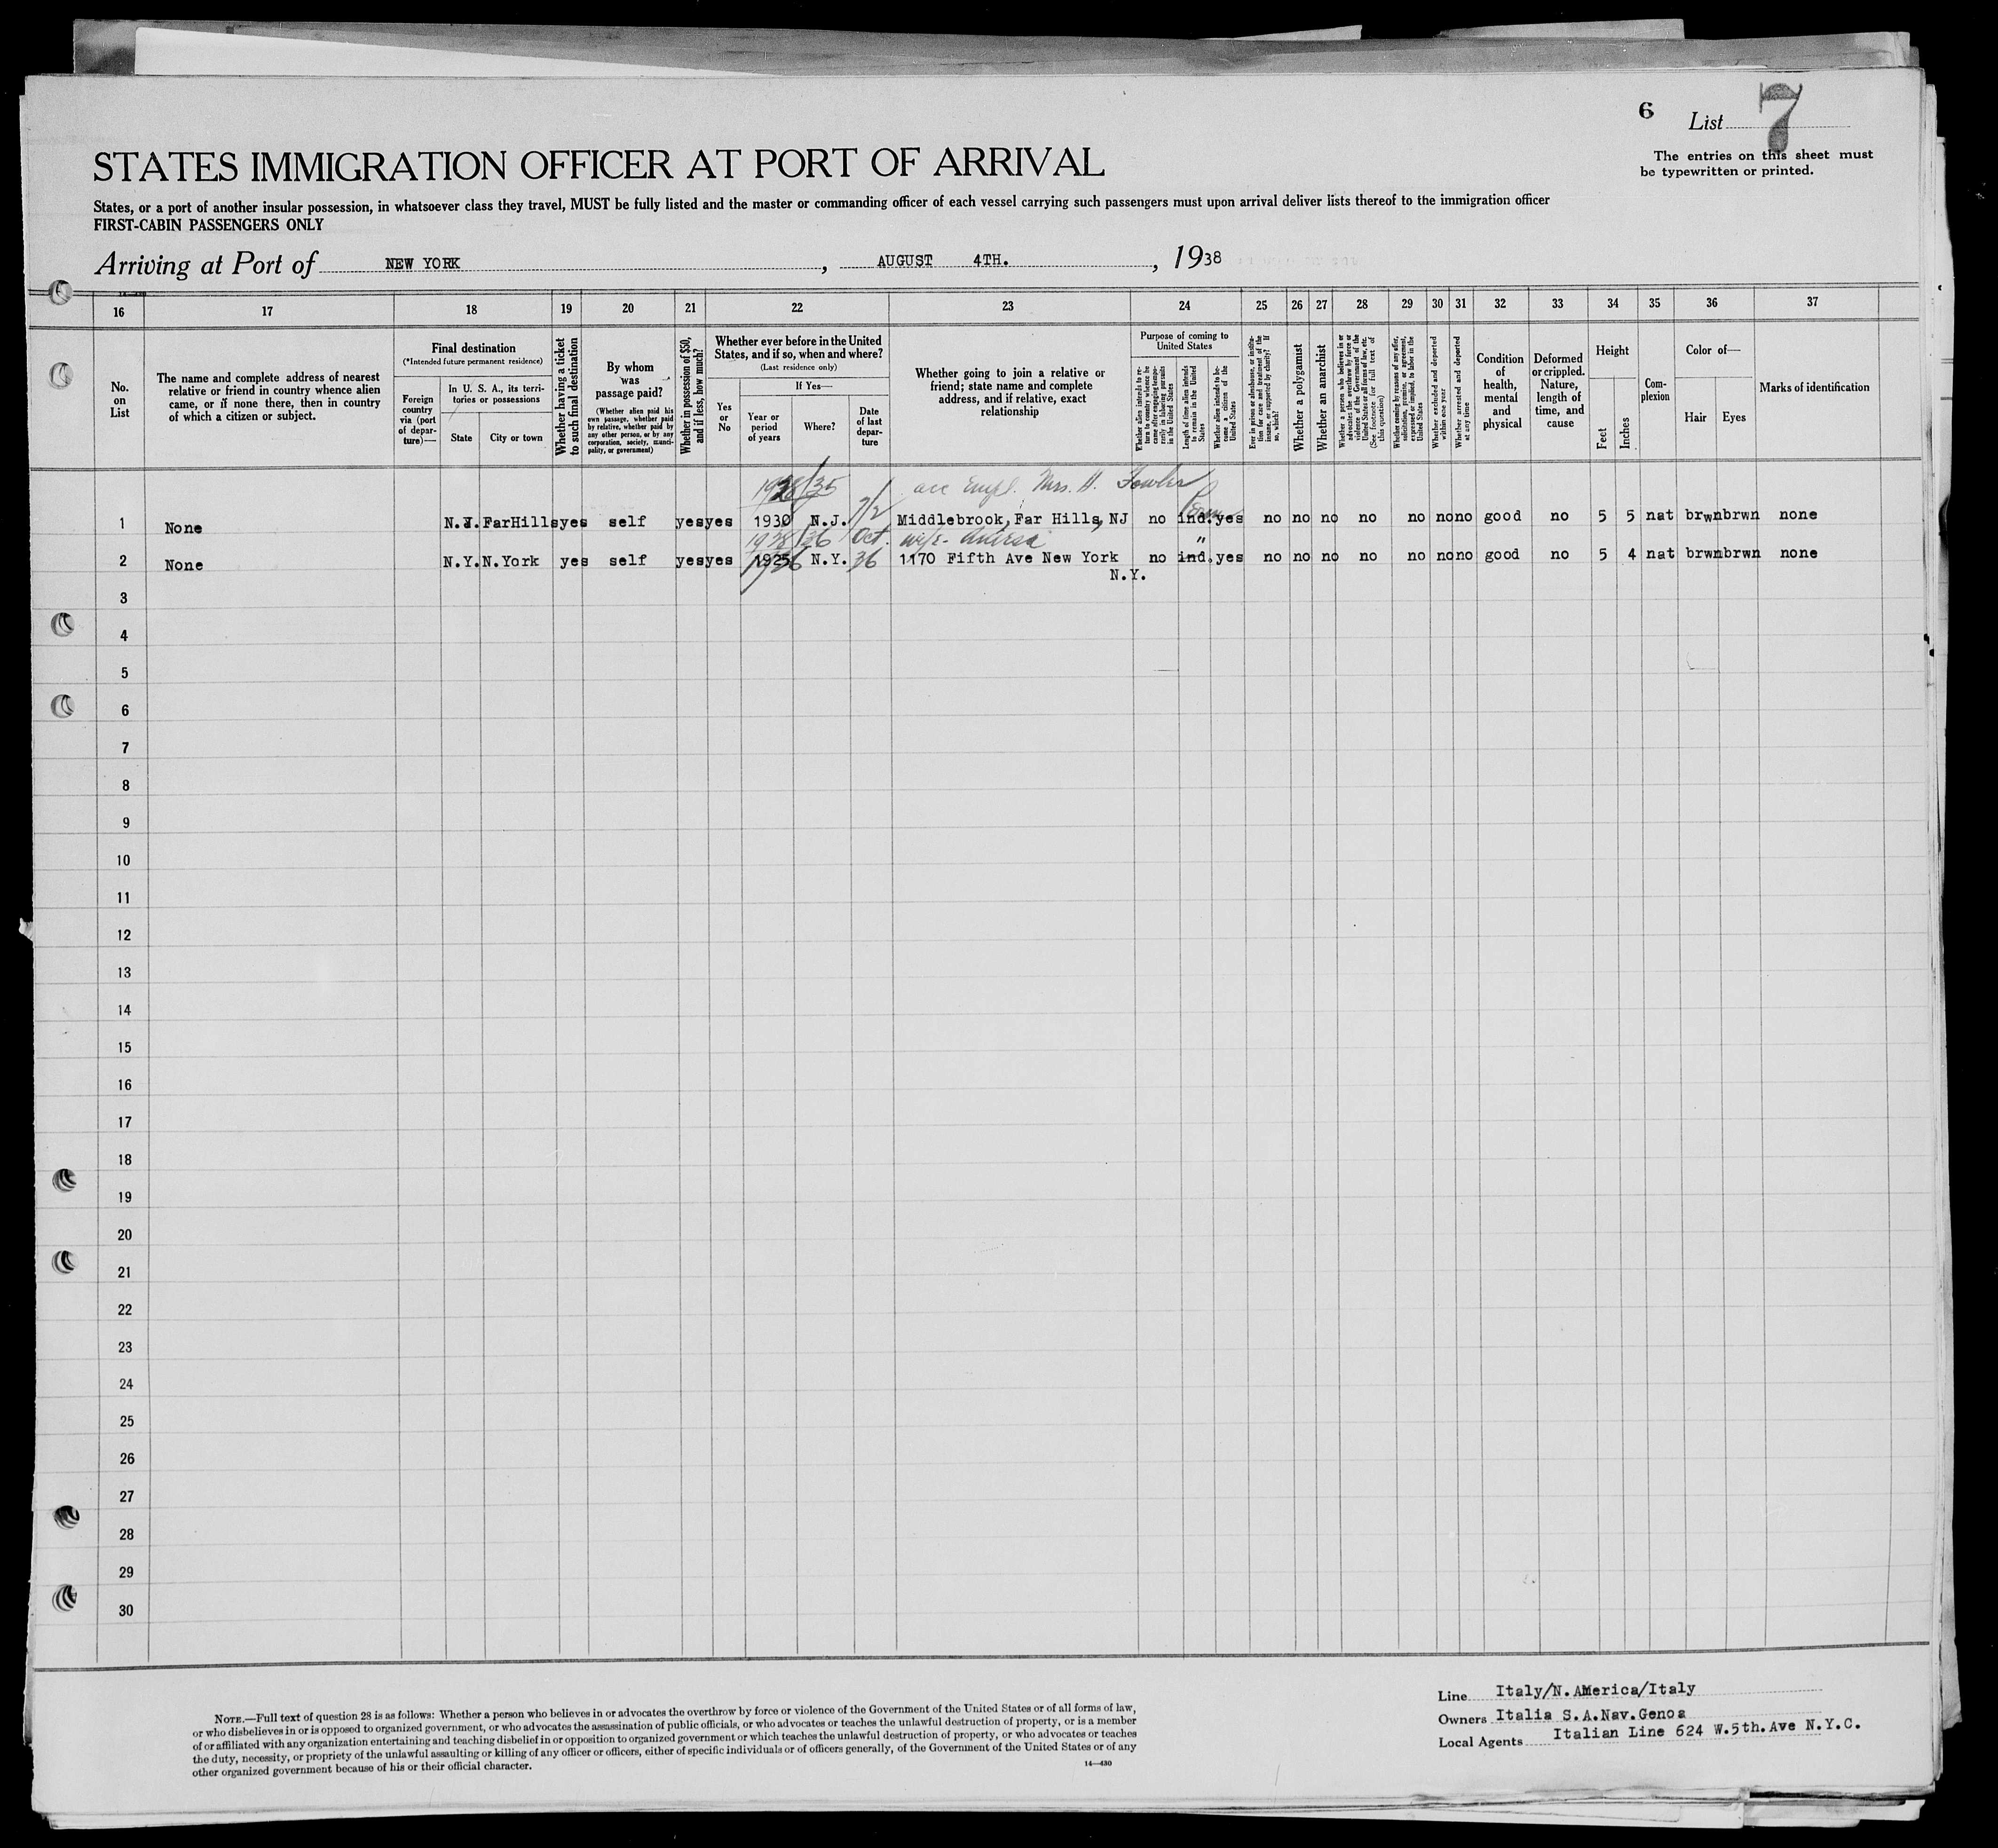 6 List 7
The entries on this sheet must
be typewritten or printed.
STATES IMMIGRATION OFFICER AT PORT OF ARRIVAL
States, or a port of another insular possession, in whatsoever class they travel, MUST be fully listed and the master or commanding officer of each vessel carrying such passengers must upon arrival deliver lists thereof to the immigration officer
FIRST-CABIN PASSENGERS ONLY
Arriving at Port of NEW YORK, AUGUST 4TH., 1938
16 17 18 19 20 21 22 23 24 25 26 27 28 29 30 31 32 33 34 35 36 37
No. on List
The name and complete address of nearest
relative or friend in country whence alien
came, or if none there, then in country
of which a citizen or subject.
Final destination
(*Intended future permanent residence)
Foreign country via (port of departure)—
In U. S. A., its territories or possessions
State
City or town
Whether having a ticket to such final destination
By whom was passage paid?
(Whether alien paid his own passage, whether paid by relative, whether paid by any other person, or by any corporation, society, municipality, or government)
Whether in possession of $50, and if less, how much?
Whether ever before in the United States, and if so, when and where?
(Last residence only)
Yes or No
If Yes—
Year or period of years
Where?
Date of last departure
Whether going to join a relative or
friend; state name and complete
address, and if relative, exact
relationship
Purpose of coming to United States
Whether alien intends to return to country whence he came after engaging temporarily in laboring pursuits in the United States
Length of time alien intends to remain in the United States
Whether alien intends to become a citizen of the United States
Ever in prison or almshouse, or institution for care and treatment of the insane, or supported by charity? If so, which?
Whether a polygamist
Whether an anarchist
Whether a person who believes in or advocates the overthrow by force or violence of the Government of the United States or all forms of law, etc. (See footnote for full text of this question)
Whether coming by reasons of any offer, solicitation, promise, or agreement, expressed or implied, to labor in the United States
Whether excluded and deported within one year
Whether arrested and deported at any time
Condition of health, mental and physical
Deformed or crippled. Nature, length of time, and cause
Height
Feet
Inches
Complexion
Color of—
Hair Eyes
Marks of identification
1928/35 acc empl. Mrs. H. Fowler
1 None N.J. FarHills yes self yes yes 1930 N.J. Middlebrook, Far Hills, NJ no ind. yes no no no no no no no good no 5 5 nat brwn brwn none
Oct. "
2 None N.Y. N.York yes self yes yes 1925 N.Y. 36 1170 Fifth Ave New York no ind. yes no no no no no no no good no 5 4 nat brwn brwn none
N.Y.
3
4
5
6
7
8
9
10
11
12
13
14
15
16
17
18
19
20
21
22
23
24
25
26
27
28
29
30
NOTE.—Full text of question 28 is as follows: Whether a person who believes in or advocates the overthrow by force or violence of the Government of the United States or of all forms of law,
or who disbelieves in or is opposed to organized government, or who advocates the assassination of public officials, or who advocates or teaches the unlawful destruction of property, or is a member
of or affiliated with any organization entertaining and teaching disbelief in or opposition to organized government or which teaches the unlawful destruction of property, or who advocates or teaches
the duty, necessity, or propriety of the unlawful assaulting or killing of any officer or officers, either of specific individuals or of officers generally, of the Government of the United States or of any
other organized government because of his or their official character.
14—430
Line Italy/N.AMerica/Italy
Owners Italia S.A.Nav.Genoa
Local Agents Italian Line 624 W.5th.Ave N.Y.C.